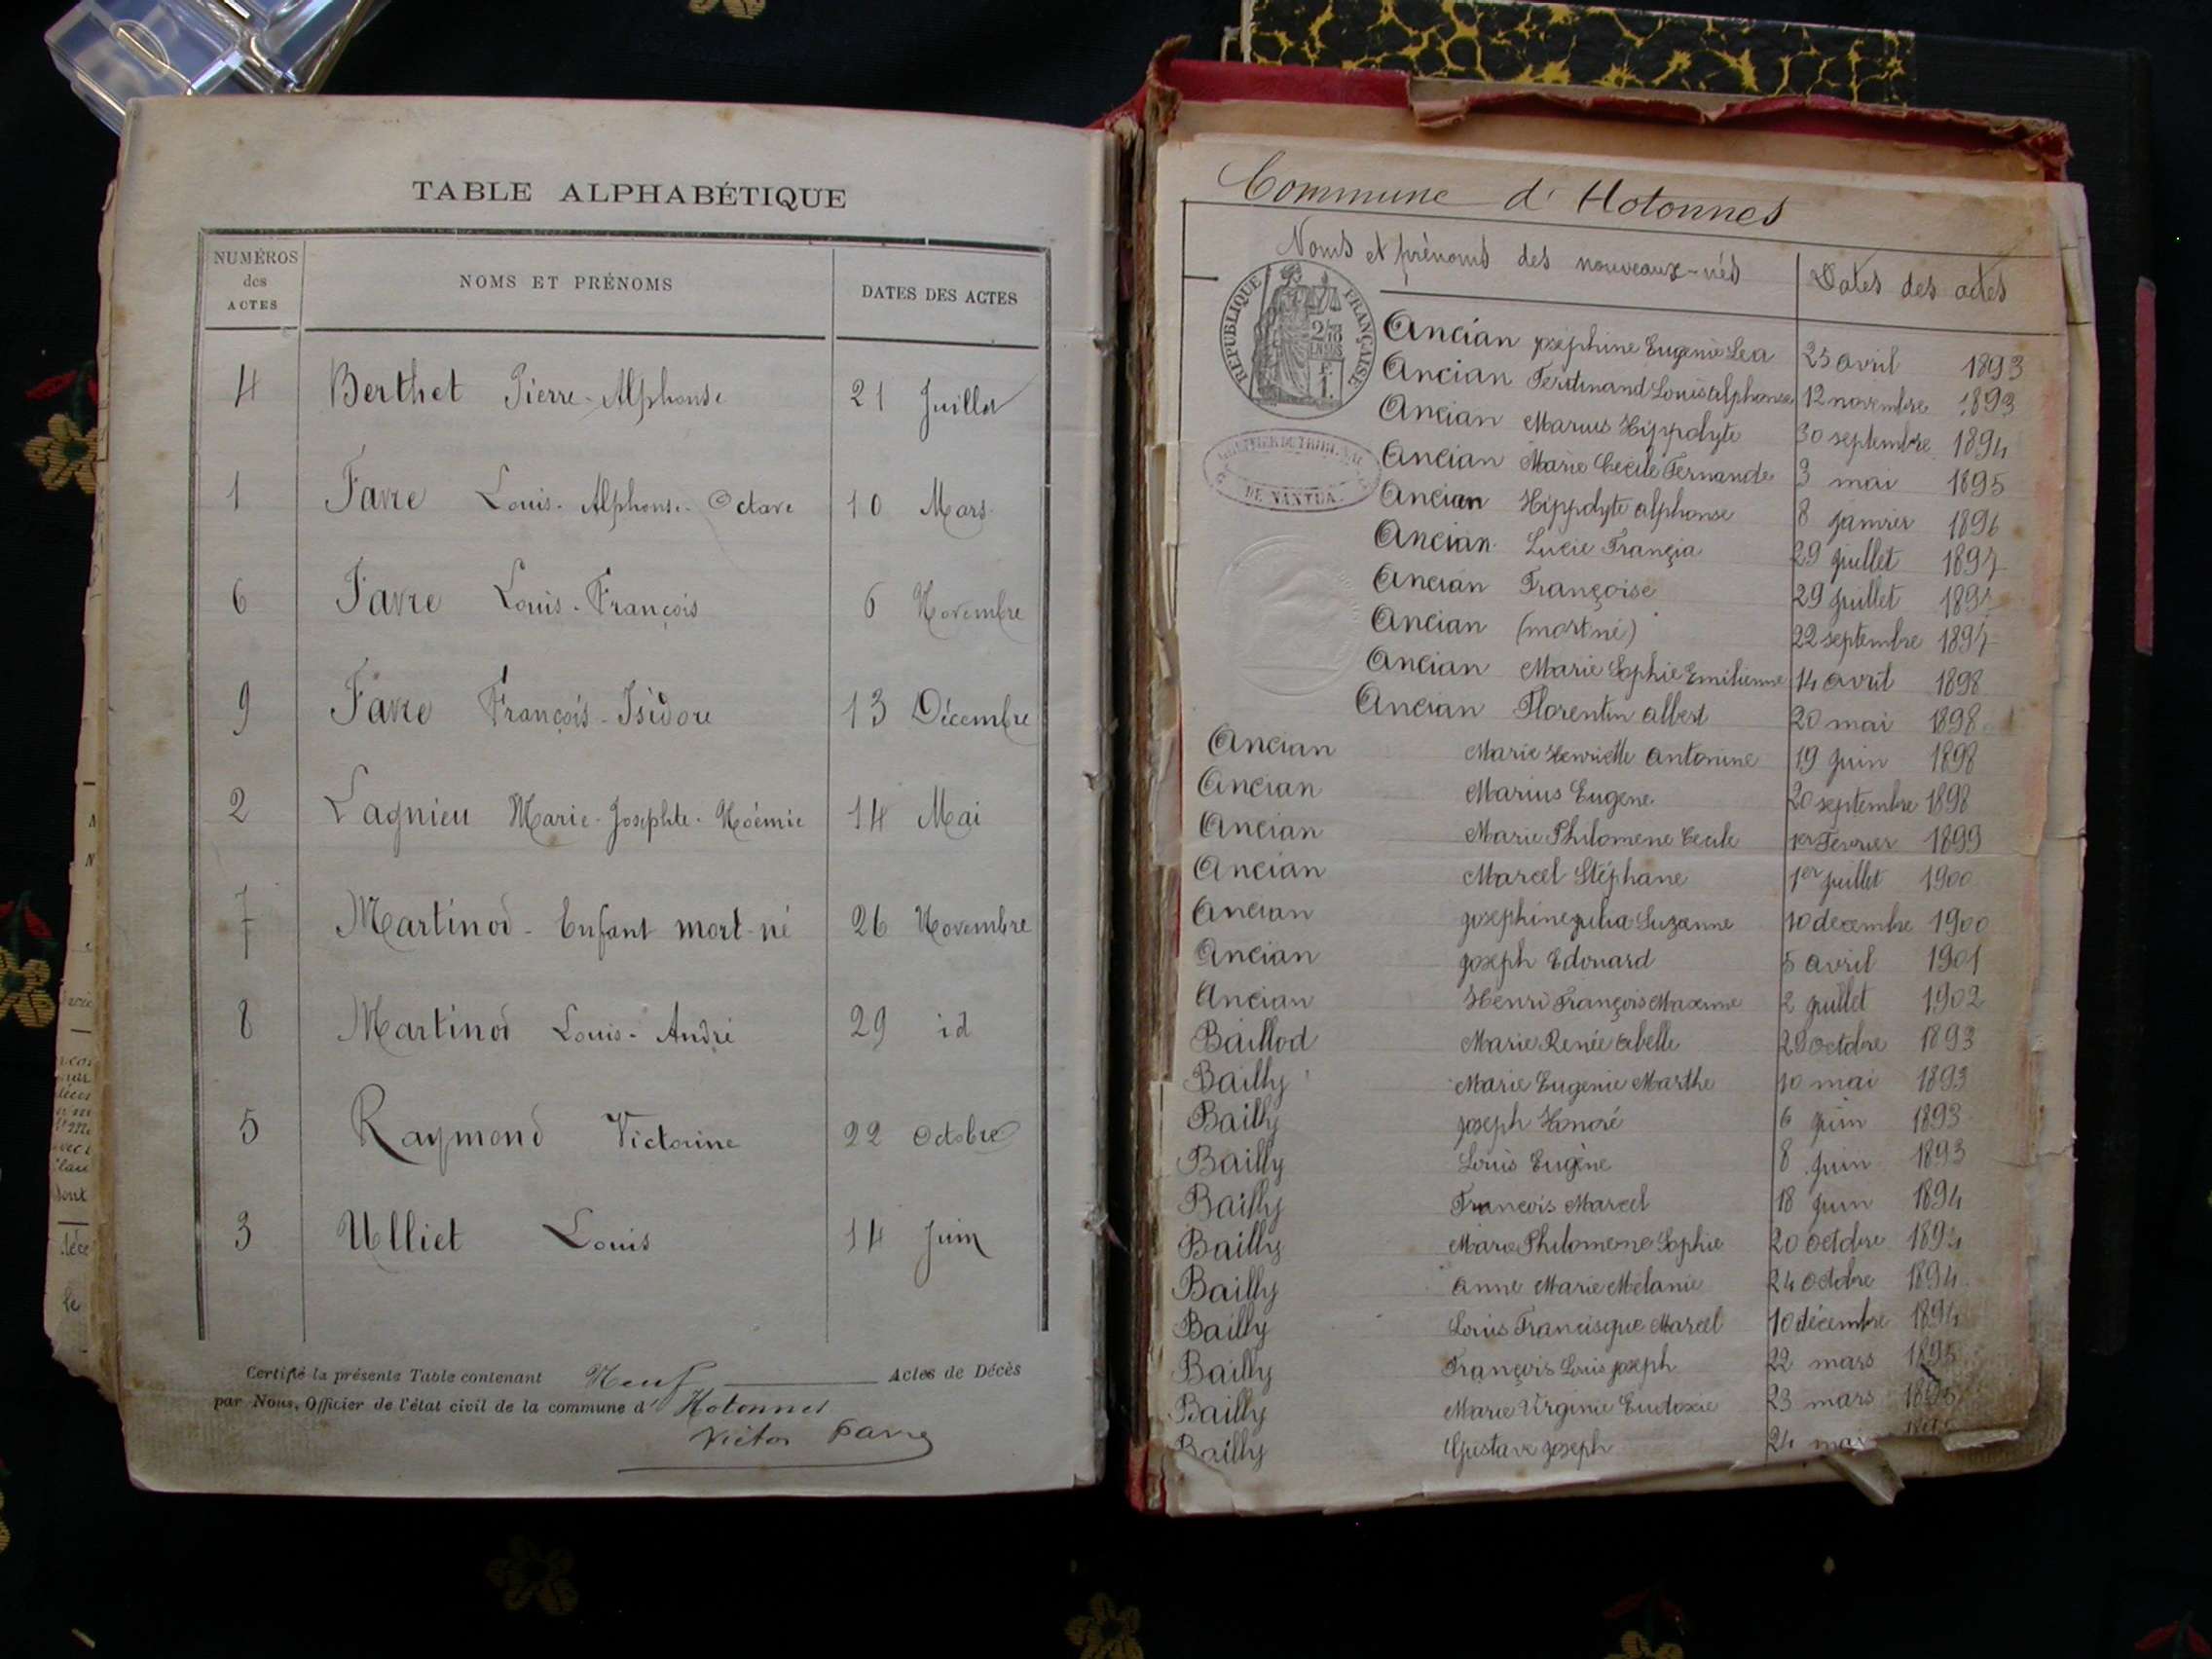 TABLE ALPHABÉTIQUE
NUMÉROS des ACTES NOMS ET PRÉNOMS DATES DES ACTES
4 Berthet Pierre-Alphonse 21 Juillet
1 Favre Louis-Alphonse-Octave 10 Mars
6 Favre Louis-François 6 Novembre
9 Favre François-Isidore 13 Décembre
2 Lagnieu Marie-Josephte-Noémie 14 Mai
7 Martinod - Enfant mort-né 26 Novembre
8 Martinod Louis-André 29 id
5 Raymond Victorine 22 Octobre
3 Ulliet Louis 14 Juin
Certifié la présente Table contenant Neuf Actes de Décès
par Nous, Officier de l'état civil de la commune d'Hotonnes
Victor Favre
Commune d'Hotonnes
Noms et prénoms des nouveaux-nés Dates des actes
REPUBLIQUE FRANÇAISE
DE NANTUA
Ancian joséphine Eugenie Lea 25 avril 1893
Ancian Ferdinand Louis alphonse 12 novembre 1893
Ancian Marius Hippolyte 30 septembre 1894
Ancian Marie Cécile Fernande 3 mai 1895
Ancian Hippolyte alphonse 8 janvier 1896
Ancian Lucie Françia 29 juillet 1897
Ancian Françoise 29 juillet 1897
Ancian (mort né) 22 septembre 1897
Ancian Marie Sophie Emilienne 14 avril 1898
Ancian Florentin albert 20 mai 1898
Ancian Marie Henriette antonine 19 juin 1898
Ancian Marius Eugene 20 septembre 1898
Ancian Marie Philomene Cecile 1er Fevrier 1899
Ancian Marcel Stéphane 1er juillet 1900
Ancian josephine julia Suzanne 10 decembre 1900
Ancian joseph Edouard 5 avril 1901
Ancian Henri François Maxime 2 juillet 1902
Baillod Marie Renée abelle 29 octobre 1893
Bailly Marie Eugenie Marthe 10 mai 1893
Bailly joseph Honoré 6 juin 1893
Bailly Louis Eugène 8 juin 1893
Bailly Francois Marcel 18 juin 1894
Bailly Marie Philomene Sophie 20 octobre 1894
Bailly anne Marie Melanie 24 octobre 1894
Bailly Louis Francisque Marcel 10 décembre 1894
Bailly François Louis joseph 22 mars 1895
Bailly Marie Virginie Eudoxie 23 mars 1895
Bailly Gustave joseph 24